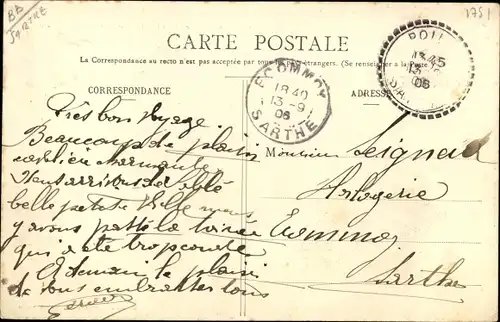 BB
SARTHE
1751
CARTE POSTALE
La Correspondance au recto n'est pas acceptée par tous les pays étrangers. (Se renseigner à la Poste)
CORRESPONDANCE
ADRESSE
ECOMMOY
18 40
13 - 9
06
SARTHE
13 45
13
06
Très bon voyage
Beaucoup de plaisir
charmante
Nous arrivons de
belle petite Ville nous
y avons passé la soirée
qui a été trop courte
A demain le plaisir
de vous embrasser tous
Monsieur Seigneur
Horlogerie
Ecommoy
Sarthe